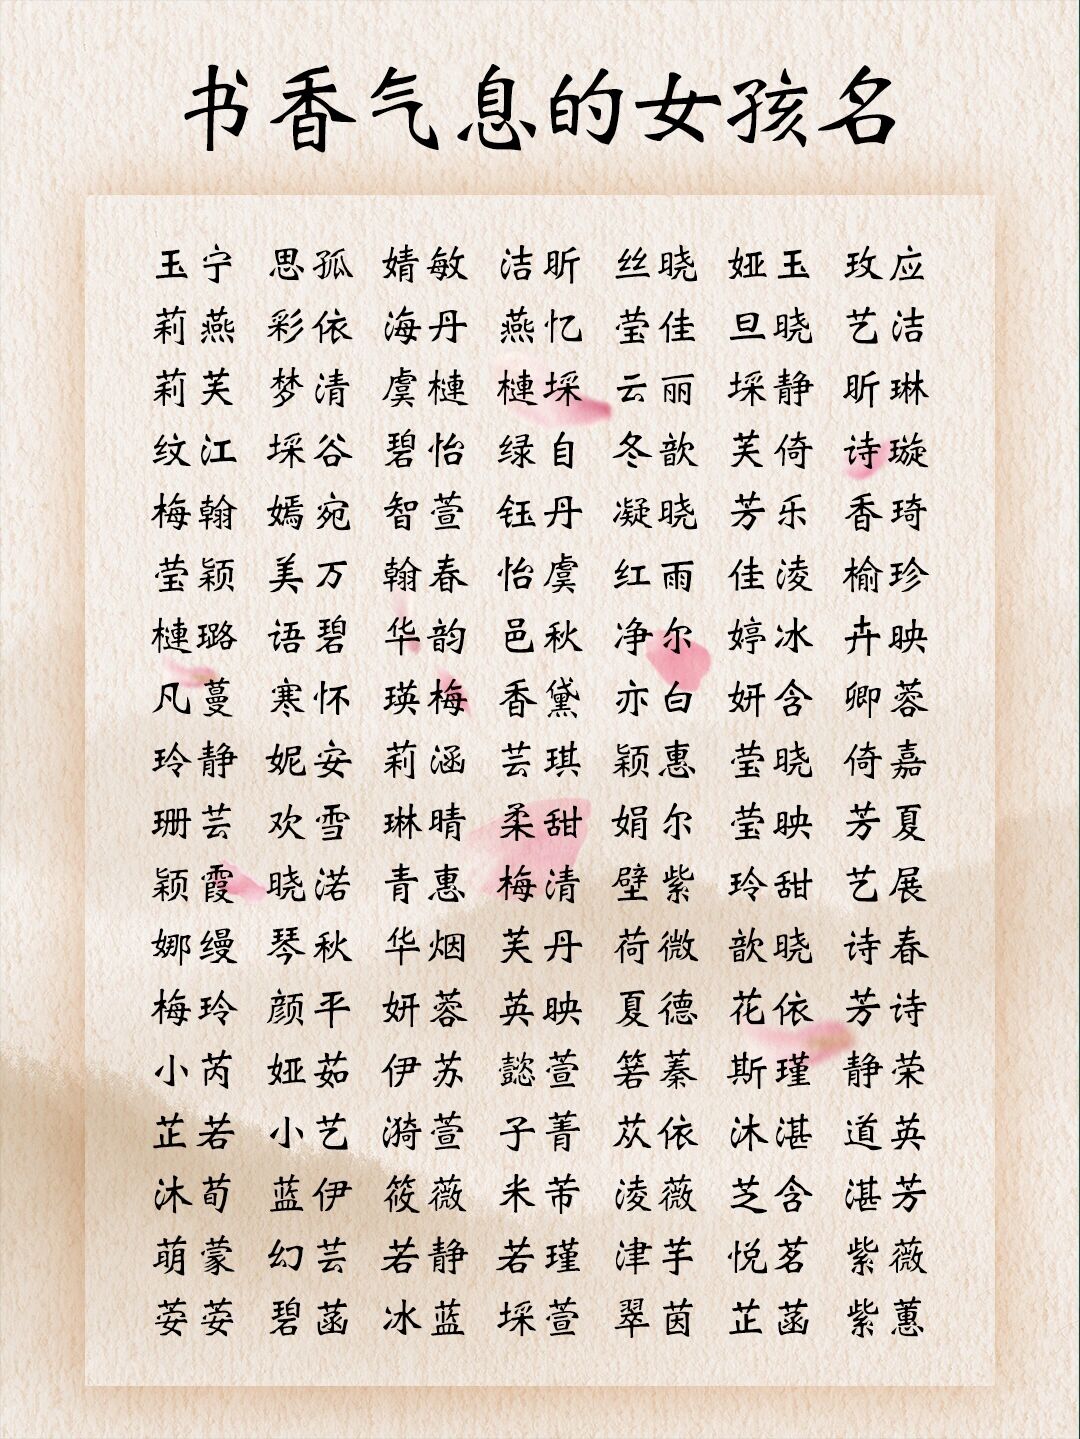 书香气息的女孩名
玉宁 思孤 婧敏 洁昕 丝晓 娅玉 玫应
莉燕 彩依 海丹 燕忆 莹佳 旦晓 艺洁
莉芙 梦清 虞槤 槤埰 云丽 埰静 昕琳
纹江 埰谷 碧怡 绿自 冬歆 芙倚 诗璇
梅翰 嫣宛 智萱 钰丹 凝晓 芳乐 香琦
莹颖 美万 翰春 怡虞 红雨 佳凌 榆珍
槤璐 语碧 华韵 邑秋 净尔 婷冰 卉映
凡蔓 寒怀 瑛梅 香黛 亦白 妍含 卿蓉
玲静 妮安 莉涵 芸琪 颖惠 莹晓 倚嘉
珊芸 欢雪 琳晴 柔甜 娟尔 莹映 芳夏
颖霞 晓渃 青惠 梅清 壁紫 玲甜 艺展
娜缦 琴秋 华烟 芙丹 荷微 歆晓 诗春
梅玲 颜平 妍蓉 英映 夏德 花依 芳诗
小芮 娅茹 伊苏 懿萱 箬蓁 斯瑾 静荣
芷若 小艺 漪萱 子菁 苁依 沐湛 道英
沐荀 蓝伊 筱薇 米芾 凌薇 芝含 湛芳
萌蒙 幻芸 若静 若瑾 津芋 悦茗 紫薇
荌荌 碧菡 冰蓝 埰萱 翠茵 芷菡 紫蕙